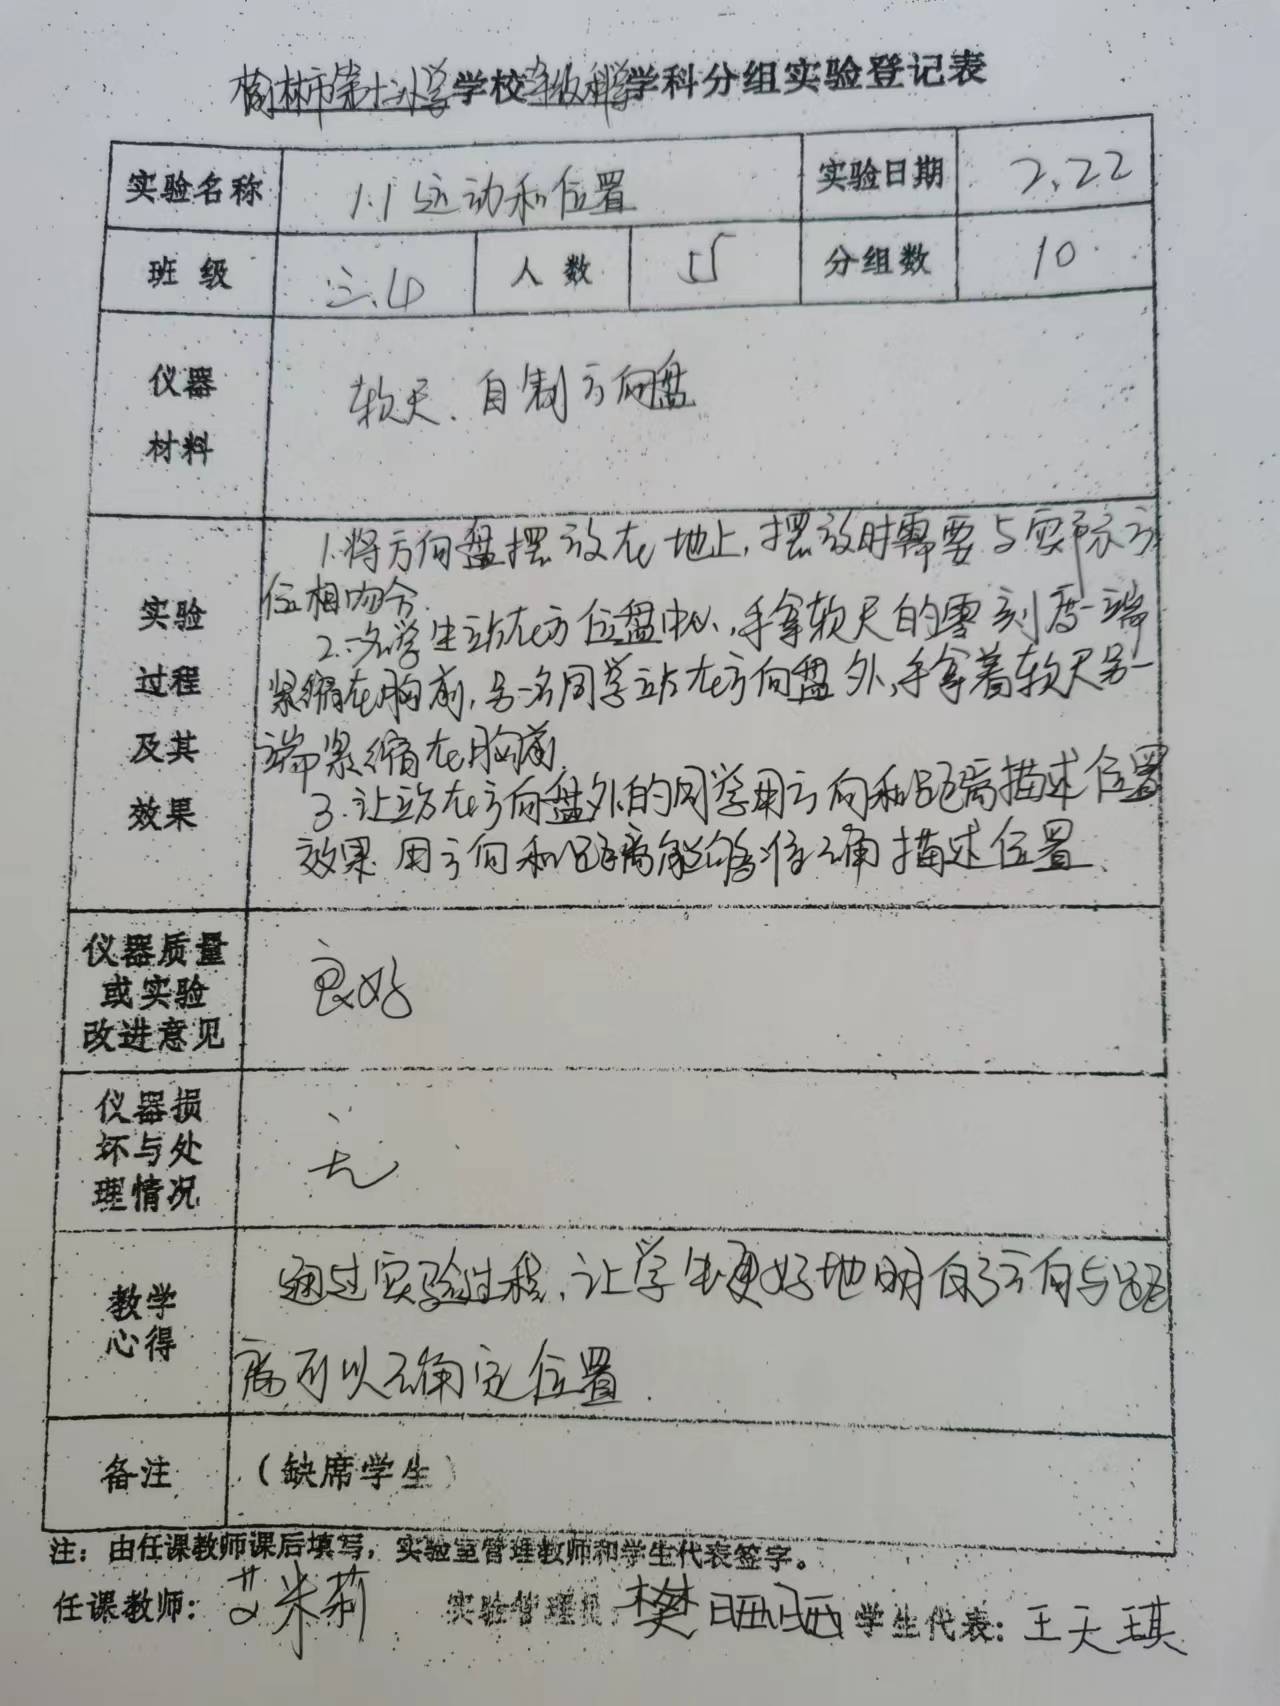 榆林市第十二小学学校年级科学学科分组实验登记表
实验名称 1.1运动和位置 实验日期 2.22
班级 三.4 人数 55 分组数 10
仪器材料 软尺、自制方向盘
实验过程及其效果
1.将方向盘摆放在地上,摆放时需要与实际方
位相吻合.
2.一名学生站在方位盘中心,手拿软尺的零刻度一端
紧缩在胸前,另一名同学站在方向盘外,手拿着软尺另一
端紧缩在胸前.
3.让站在方向盘外的同学用方向和距离描述位置
效果 用方向和距离能够准确描述位置.
仪器质量或实验改进意见 良好
仪器损坏与处理情况 无
教学心得
通过实验过程,让学生更好地明白了方向与距
离可以确定位置.
备注 (缺席学生)
注:由任课教师课后填写,实验室管理教师和学生代表签字。
任课教师: 艾米莉 实验管理员: 樊 学生代表: 王天琪